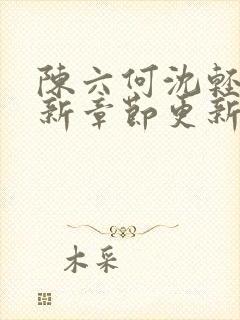 陳六何沈輕
新章節更新
木采